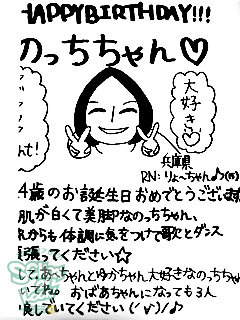 HAPPY BIRTHDAY!!!
のっちちゃん♡
大好きっ
nt!
兵庫県
RN:りょ〜ちゃん♪(m)
4歳のお誕生日おめでとうございます
肌が白くて美脚なのっちちゃん、
れからも体調に気をつけて歌とダンス
張ってください☆
して、あ〜ちゃんとゆかちゃん大好きなのっちちゃ
いてね。おばあちゃんになっても3人
良していてください(´∀`)/♪